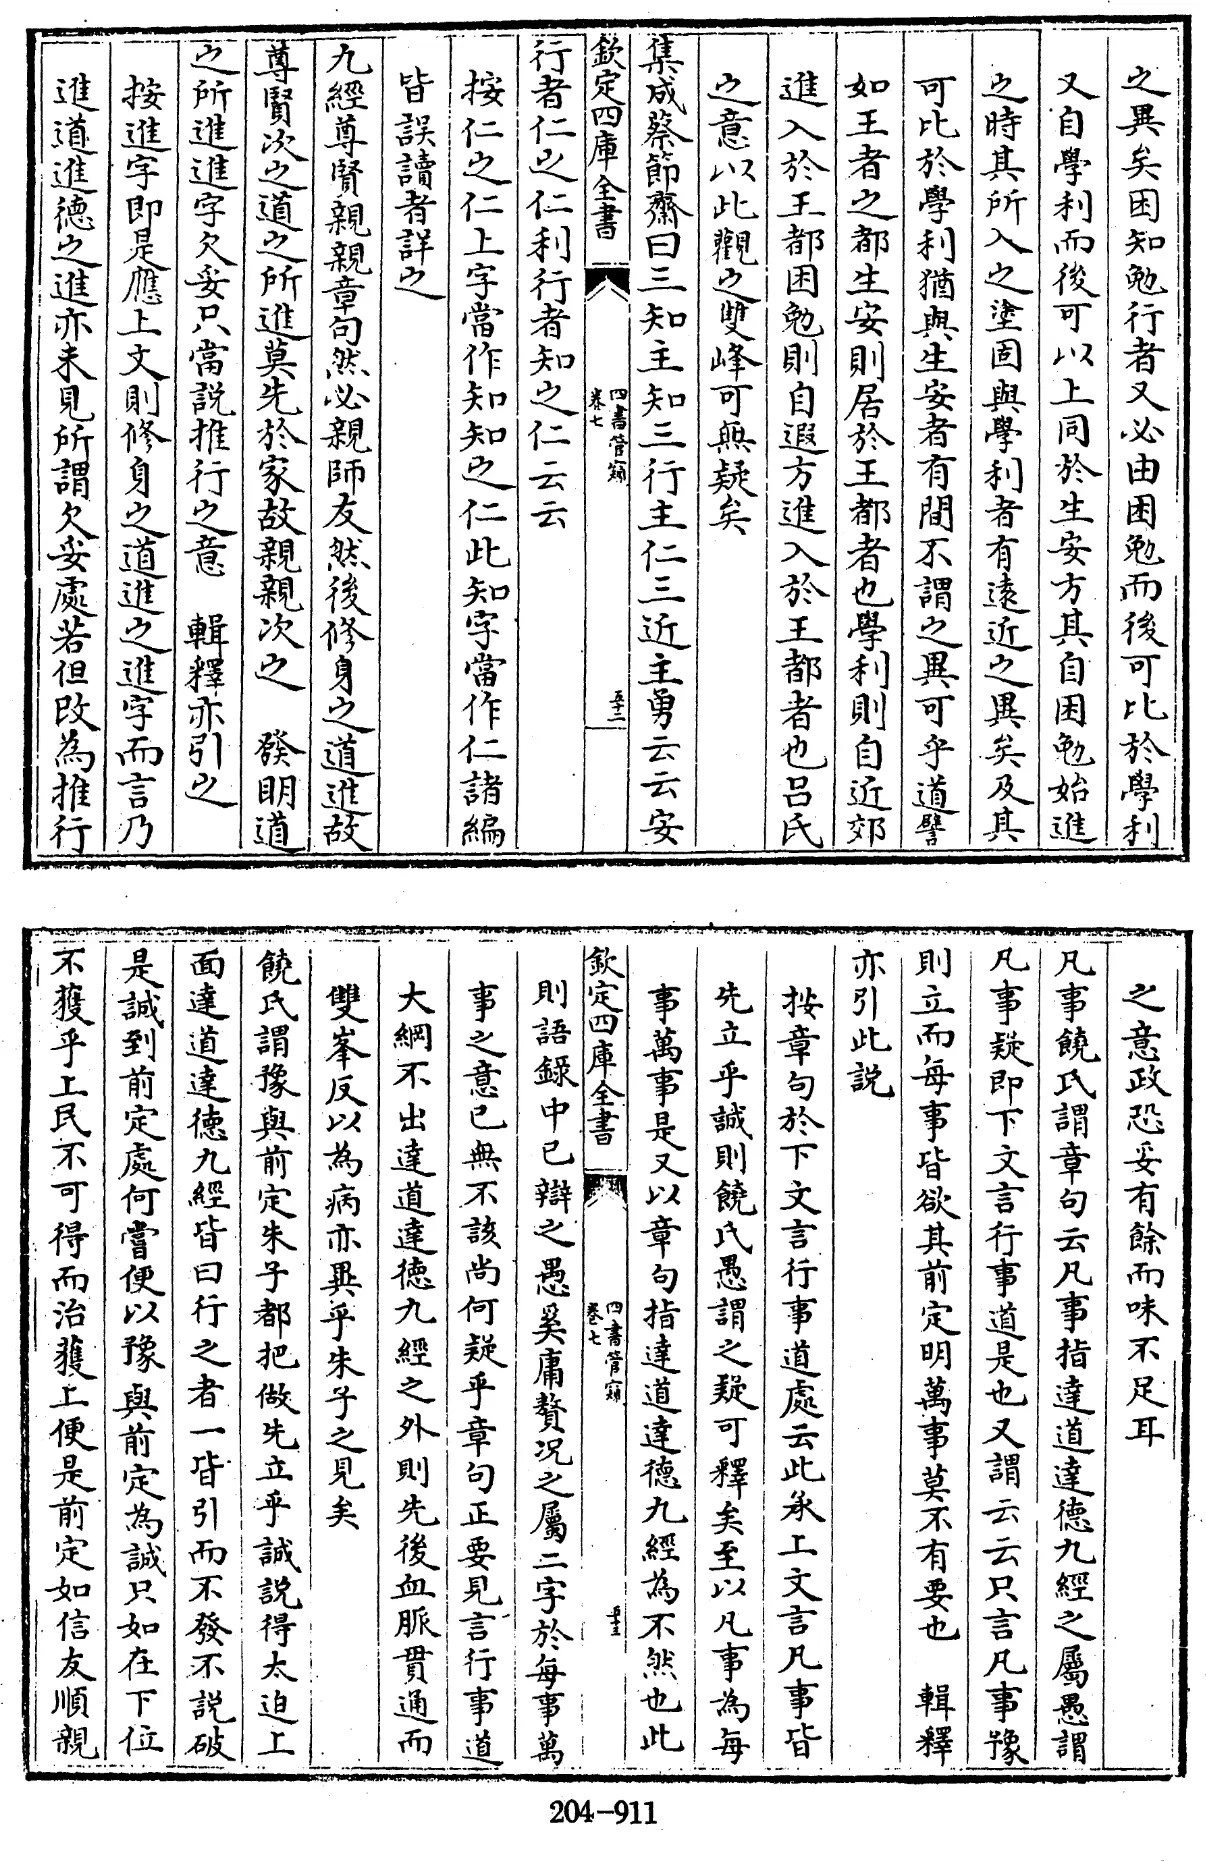 之異矣困知勉行者又必由困勉而後可比於學利
又自學利而後可以上同於生安方其自困勉始進
之時其所入之塗固與學利者有遠近之異矣及其
可比於學利猶與生安者有間不謂之異可乎道譬
如王者之都生安則居於王都者也學利則自近郊
進入於王都困勉則自遐方進入於王都者也呂氏
之意以此觀之雙峰可無疑矣
集成蔡節齋曰三知主知三行主仁三近主勇云云安
欽定四庫全書
四書管窺
卷七
五十二
行者仁之仁利行者知之仁云云
按仁之仁上字當作知知之仁此知字當作仁諸編
皆誤讀者詳之
九經尊賢親親章句然必親師友然後修身之道進故
尊賢次之道之所進莫先於家故親親次之 發明道
之所進進字欠妥只當説推行之意 輯釋亦引之
按進字即是應上文則修身之道進之進字而言乃
進道進德之進亦未見所謂欠妥處若但改為推行
之意政恐妥有餘而味不足耳
凡事饒氏謂章句云凡事指達道達德九經之屬愚謂
凡事疑即下文言行事道是也又謂云云只言凡事豫
則立而每事皆欲其前定明萬事莫不有要也 輯釋
亦引此説
按章句於下文言行事道處云此承上文言凡事皆
先立乎誠則饒氏愚謂之疑可釋矣至以凡事為每
事萬事是又以章句指達道達德九經為不然也此
欽定四庫全書
四書管窺
卷七
五十三
則語錄中已辯之愚奚庸贅況之屬二字於每事萬
事之意已無不該尚何疑乎章句正要見言行事道
大綱不出達道達德九經之外則先後血脈貫通而
雙峯反以為病亦異乎朱子之見矣
饒氏謂豫與前定朱子都把做先立乎誠説得太迫上
面達道達德九經皆曰行之者一皆引而不發不説破
是誠到前定處何嘗便以豫與前定為誠只如在下位
不獲乎上民不可得而治獲上便是前定如信友順親
204-911